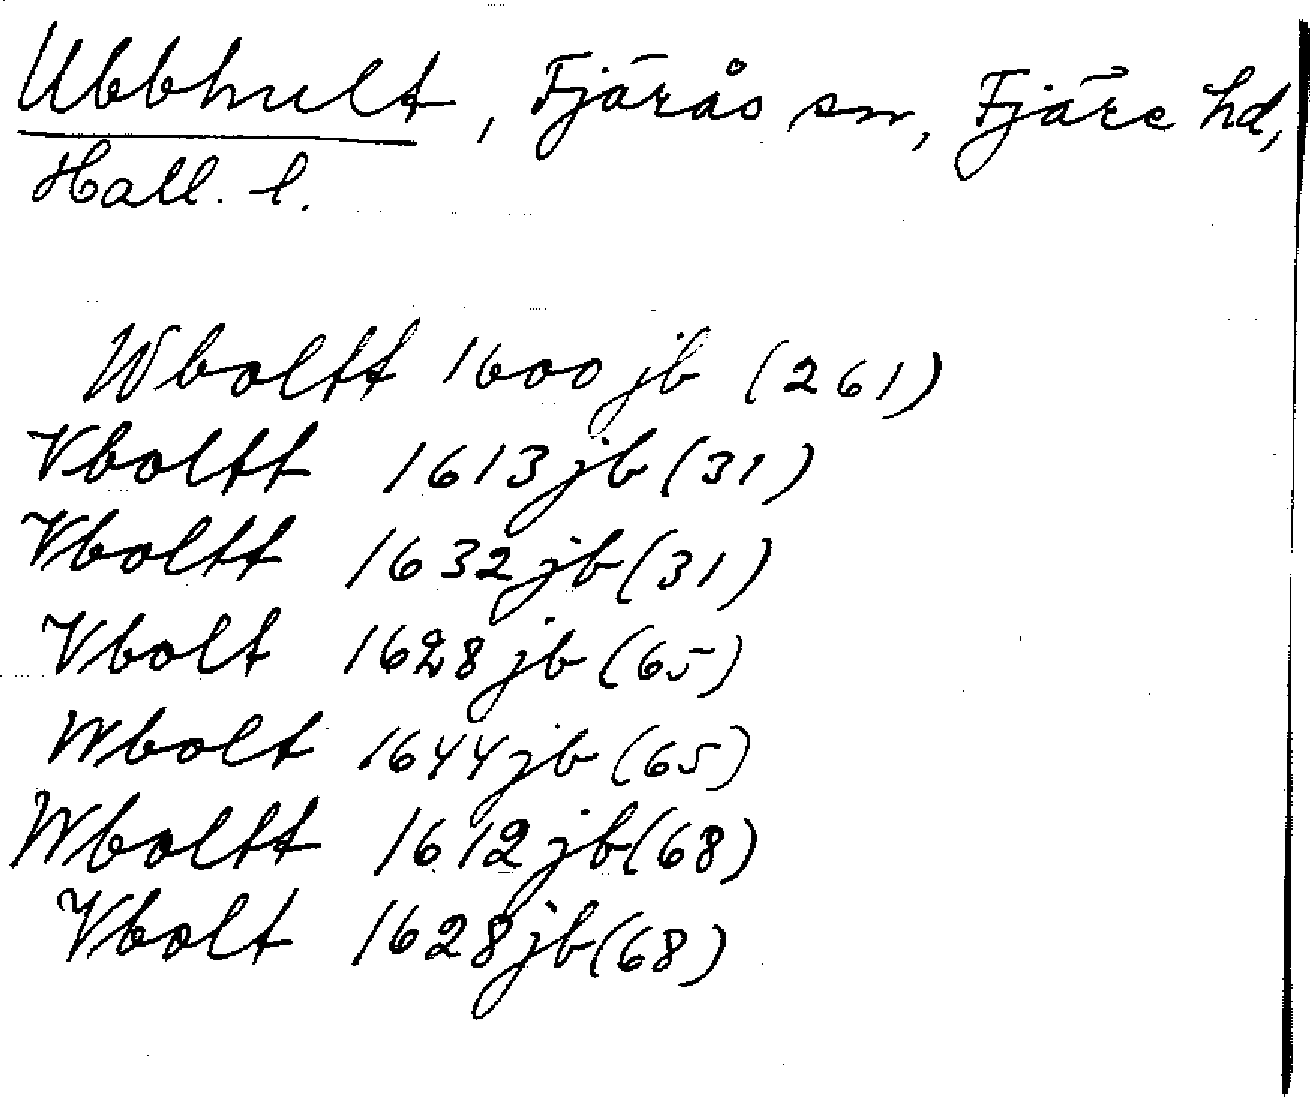 Ubbhult, Fjärås sn, Fjäre hd,
Hall. l.
Wboltt 1600 jb (261)
Vboltt 1613 jb (31)
Vboltt 1632 jb (31)
Vbolt 1628 jb (65)
Wbolt 1644 jb (65)
Wboltt 1612 jb (68)
Vbolt 1628 jb (68)